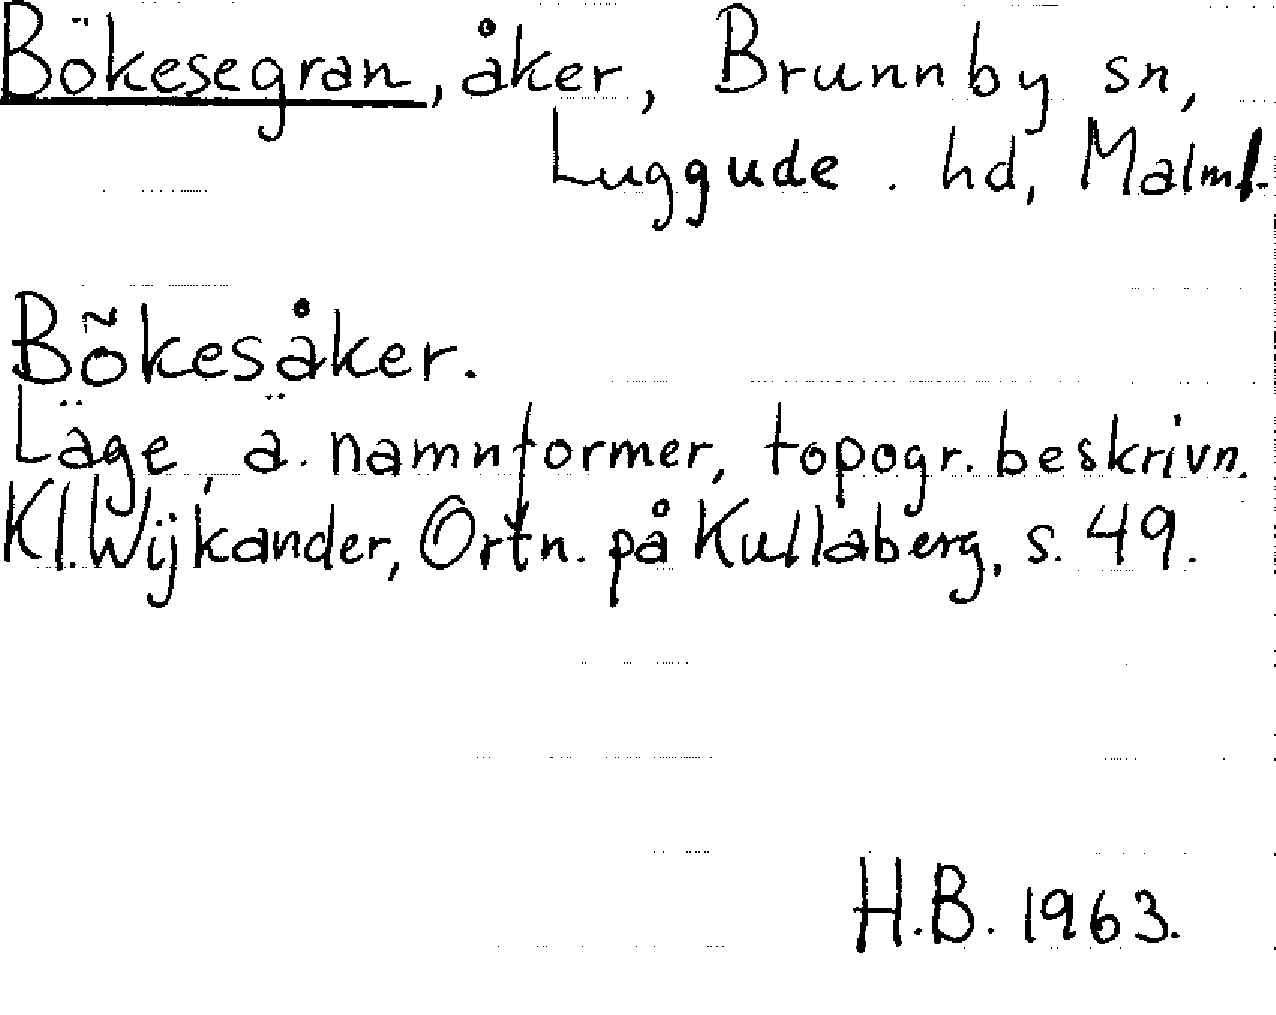 Bökesegran, åker, Brunnby sn,
Luggude hd, Malm l.
Bökesåker.
Läge, ä. namnformer, topogr. beskrivn.
Kl. Wijkander, Ortn. på Kullaberg, s. 49.
H.B. 1963.